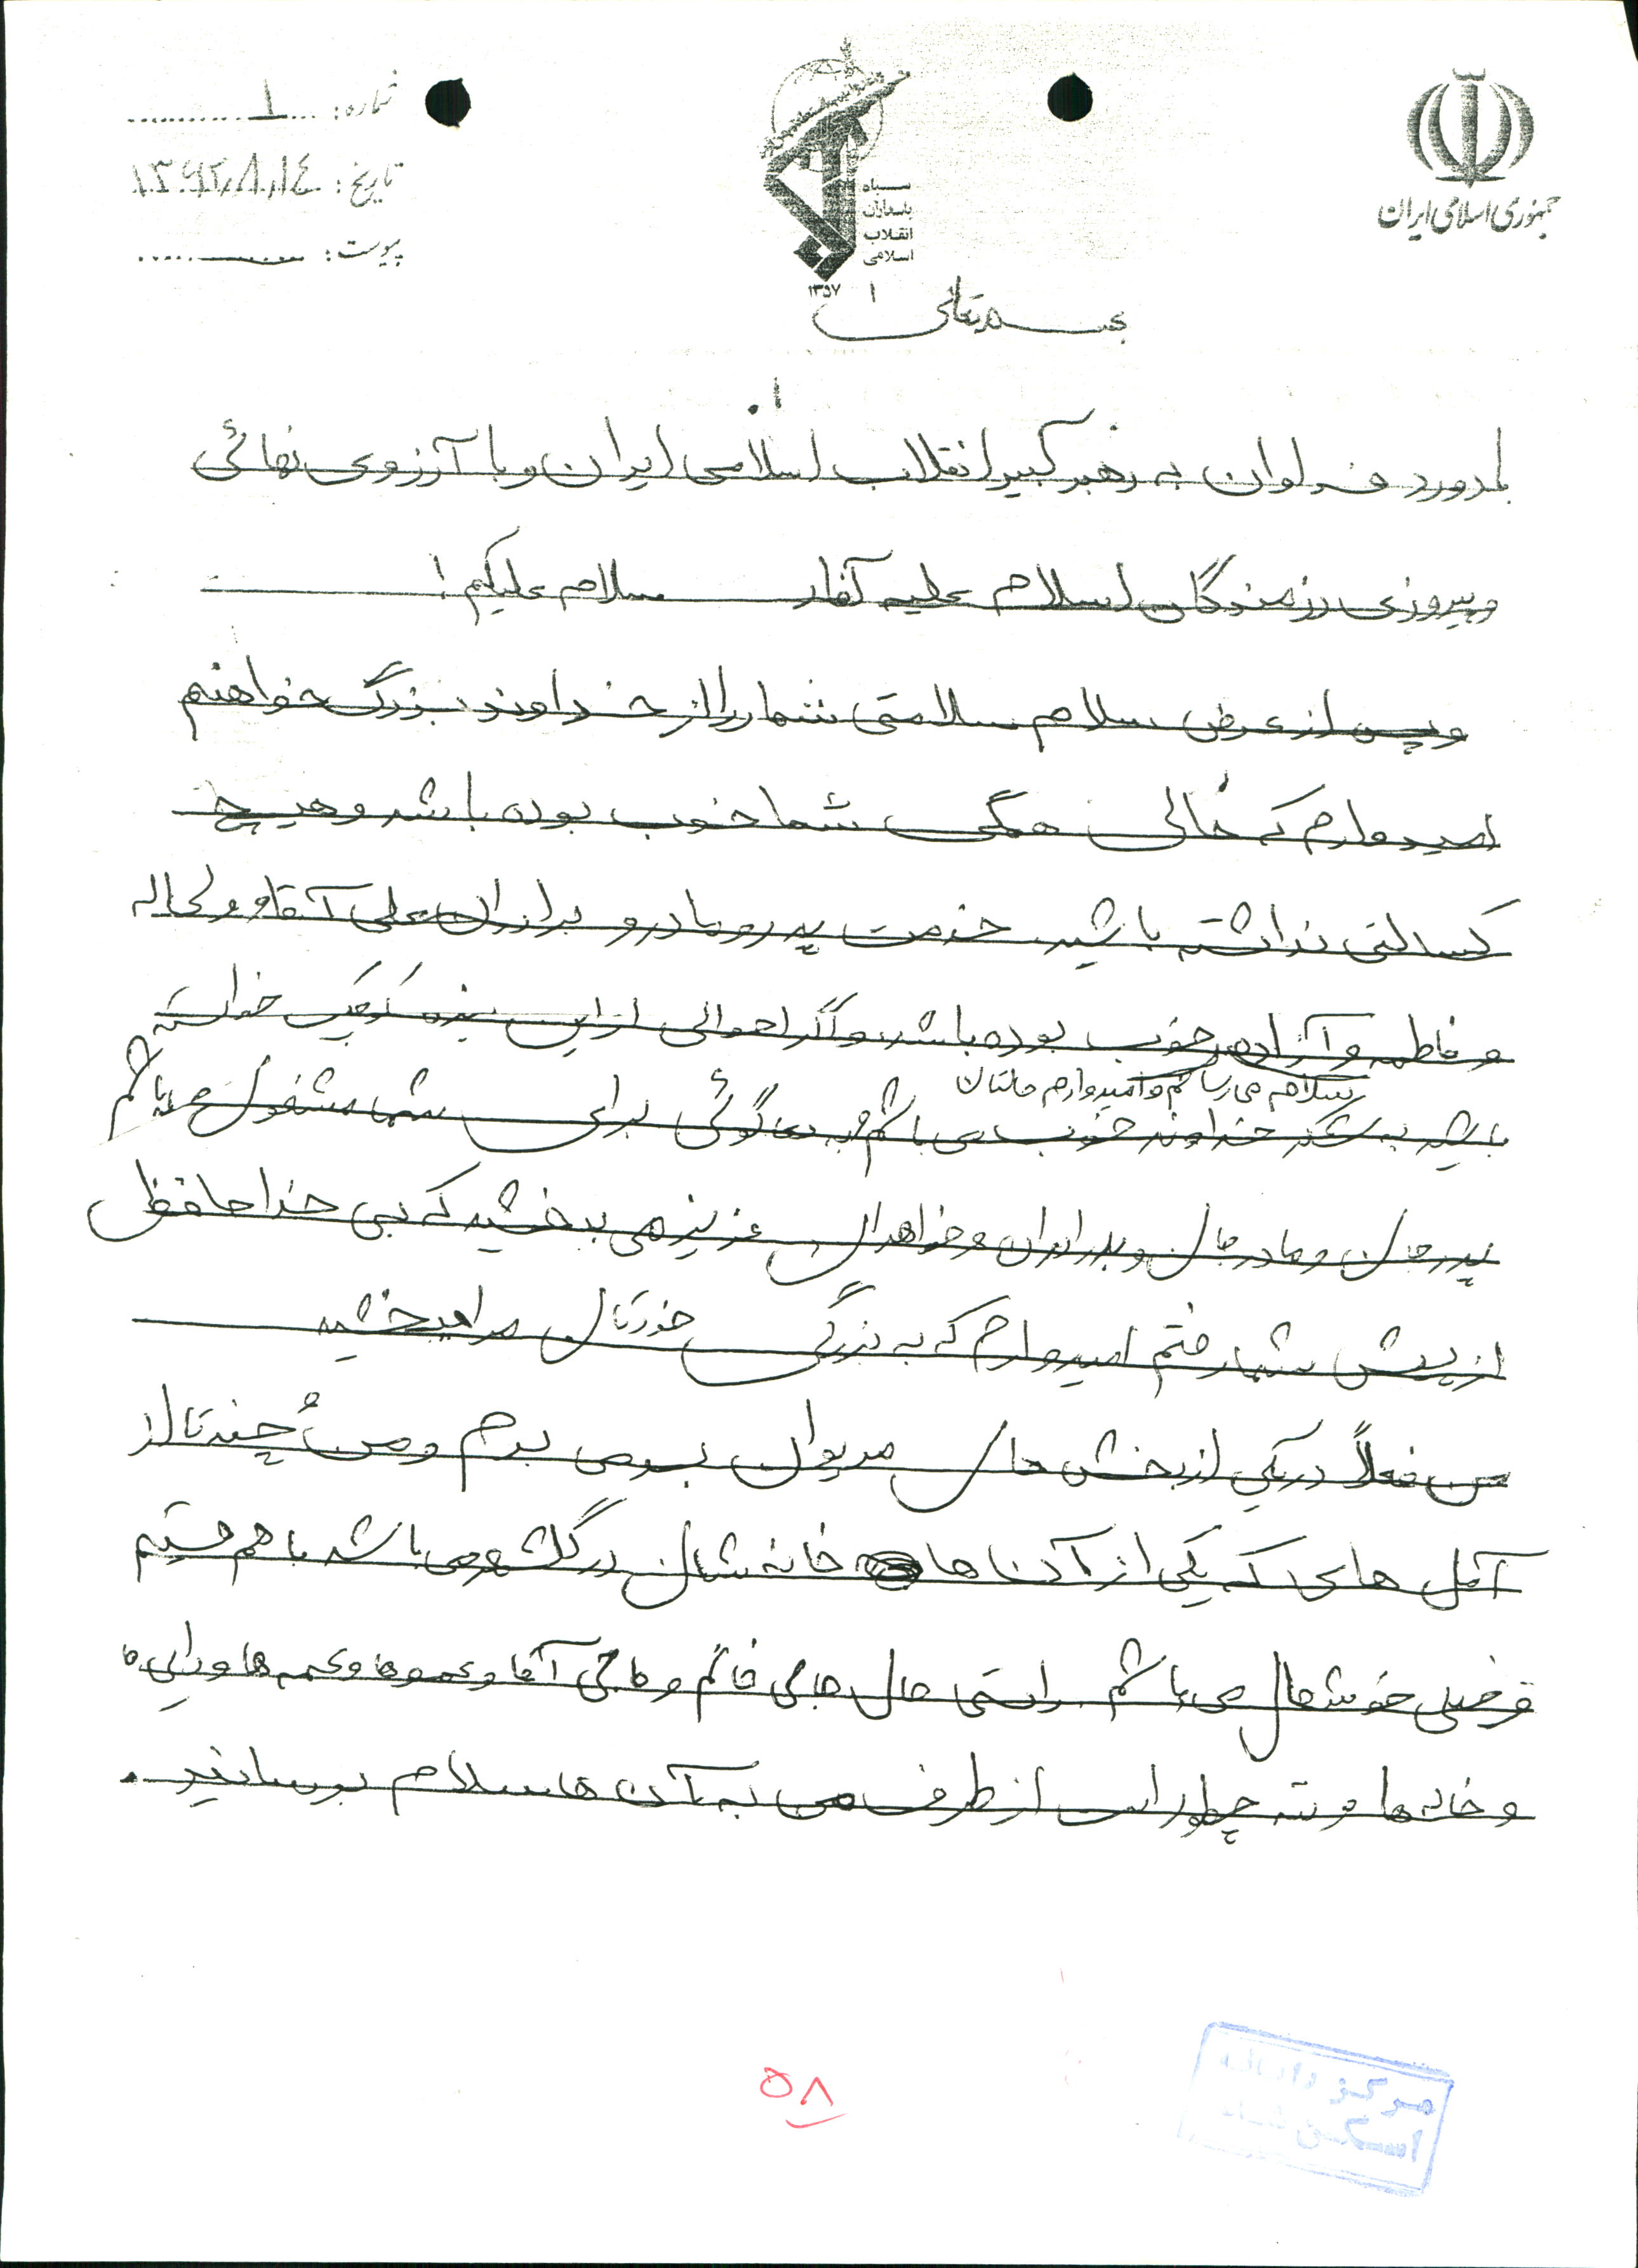 جمهوری اسلامی ایران
سپاه
پاسداران
انقلاب
اسلامی
۱۳۵۷
شماره: ۱
تاریخ: ۱۳۶۲/۸/۱٤
پیوست:
بسمه تعالی
با درود فراوان به رهبر کبیر انقلاب اسلامی ایران و با آرزوی نهائی
و پیروزی رزمندگان اسلام علیه کفار سلام علیکم!
و پس از عرض سلام سلامتی شما را از خداوند بزرگ خواهنم
امیدوارم که حالی همگی شما خوب بوده باشد و هیچ
کسالتی نداشته باشید خدمت پدر و مادر و برادران علی آقا و
و فاطمه و آزاده خوب بوده باشد و اگر احوالی از این بنده کوچک خواسته
سلام می رسانم و امیدوارم حالتان
باشید به شکر خداوند خوب می باشم و به دعاگوئی برای شما مشغول می باشم
پدر جان و مادر جان و برادران و خواهران عزیزم می بخشید که بی خداحافظی
از پیش شما رفتم امیدوارم که به بزرگی خودتان مرا ببخشید
من فعلاً در یکی از بخش های مریوان بسر می برم و من چند تا از
که یکی از آن ها خانه شان در گلشهر می باشد با هم هستیم
و خیلی خوشحال می باشم راستی حال حاجی خانم و حاجی آقا و عموها و عمه ها و دایی ها
و خاله ها چطور است از طرف من به آن ها سلام برسانید.
۵۸
مرکز
اسکن شد